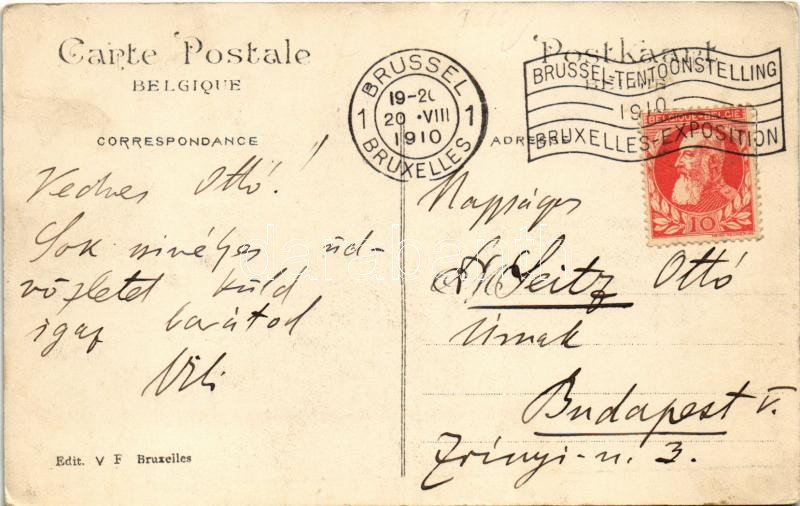 Carte Postale
BELGIQUE
CORRESPONDANCE
Kedves Ottó!
Sok szivélyes üd-
vözletet küld
igaz barátod
Vili
Edit. V F Bruxelles
BRUSSEL
1 19-20 1
20 ·VIII
1910
BRUXELLES
Postkaart
BELGIE
ADRES
BRUSSEL-TENTOONSTELLING
1910
BRUXELLES-EXPOSITION
BELGIQUE-BELGIE
10
Nagyságos
Dr Seitz Ottó
Úrnak
Budapest V.
Zrínyi-u. 3.
darabanth